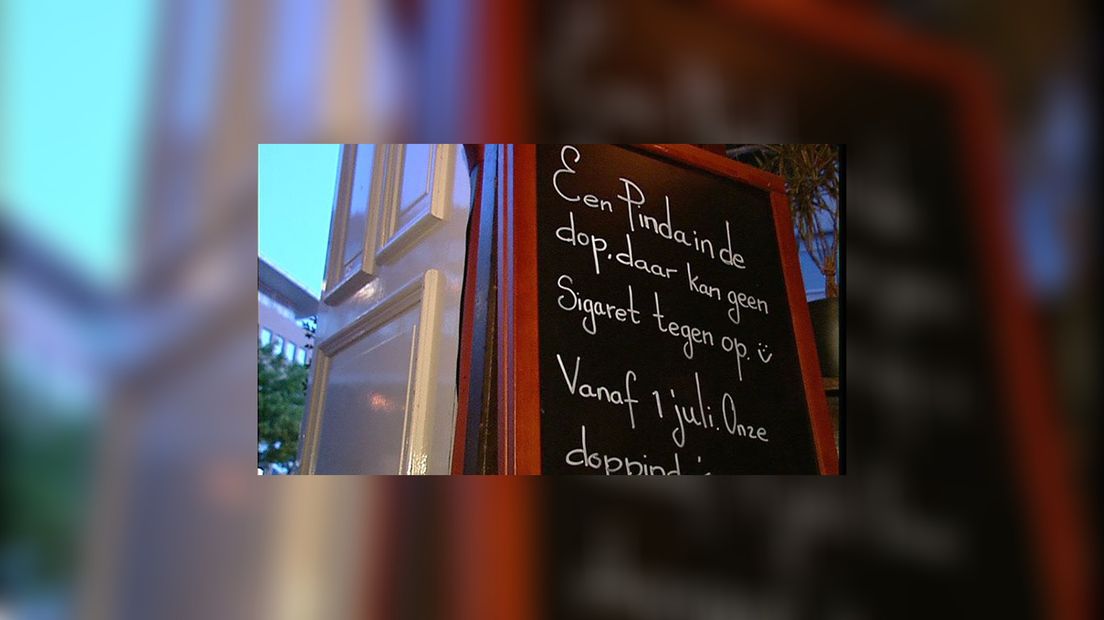 Een Pinda in de
dop, daar kan geen
Sigaret tegen op. ü
Vanaf 1 juli. Onze